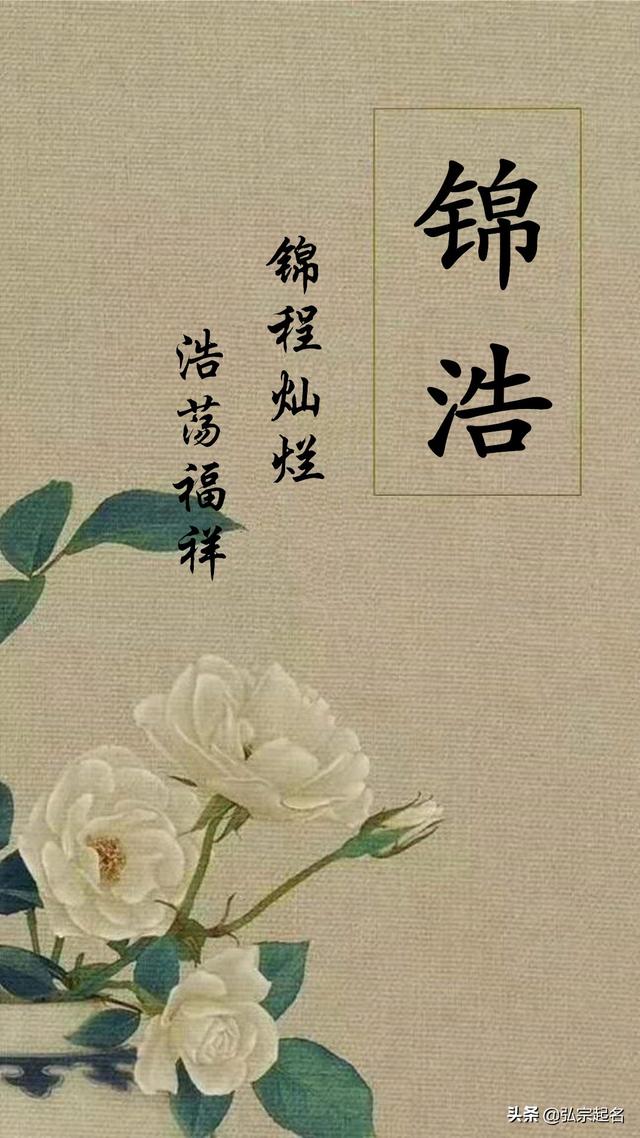 锦浩
锦程灿烂
浩荡福祥
头条 @弘宗起名